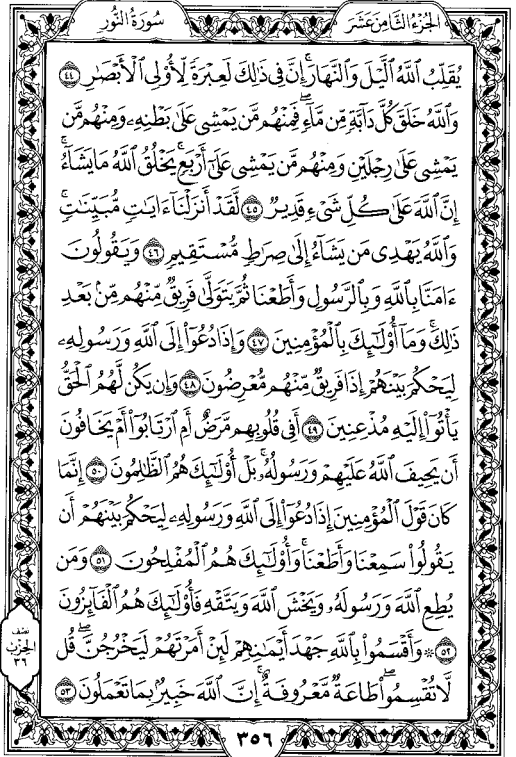 الجزء الثامن عشر
سورة النور
يُقَلِّبُ ٱللَّهُ ٱلَّيْلَ وَٱلنَّهَارَ ۚ إِنَّ فِى ذَٰلِكَ لَعِبْرَةً لِّأُو۟لِى ٱلْأَبْصَٰرِ ٤٤
وَٱللَّهُ خَلَقَ كُلَّ دَآبَّةٍ مِّن مَّآءٍ ۖ فَمِنْهُم مَّن يَمْشِى عَلَىٰ بَطْنِهِۦ وَمِنْهُم مَّن
يَمْشِى عَلَىٰ رِجْلَيْنِ وَمِنْهُم مَّن يَمْشِى عَلَىٰٓ أَرْبَعٍ ۚ يَخْلُقُ ٱللَّهُ مَا يَشَآءُ ۚ
إِنَّ ٱللَّهَ عَلَىٰ كُلِّ شَىْءٍ قَدِيرٌ ٤٥ لَّقَدْ أَنزَلْنَآ ءَايَٰتٍ مُّبَيِّنَٰتٍ ۚ
وَٱللَّهُ يَهْدِى مَن يَشَآءُ إِلَىٰ صِرَٰطٍ مُّسْتَقِيمٍ ٤٦ وَيَقُولُونَ
ءَامَنَّا بِٱللَّهِ وَبِٱلرَّسُولِ وَأَطَعْنَا ثُمَّ يَتَوَلَّىٰ فَرِيقٌ مِّنْهُم مِّنۢ بَعْدِ
ذَٰلِكَ ۚ وَمَآ أُو۟لَٰٓئِكَ بِٱلْمُؤْمِنِينَ ٤٧ وَإِذَا دُعُوٓا۟ إِلَى ٱللَّهِ وَرَسُولِهِۦ
لِيَحْكُمَ بَيْنَهُمْ إِذَا فَرِيقٌ مِّنْهُم مُّعْرِضُونَ ٤٨ وَإِن يَكُن لَّهُمُ ٱلْحَقُّ
يَأْتُوٓا۟ إِلَيْهِ مُذْعِنِينَ ٤٩ أَفِى قُلُوبِهِم مَّرَضٌ أَمِ ٱرْتَابُوٓا۟ أَمْ يَخَافُونَ
أَن يَحِيفَ ٱللَّهُ عَلَيْهِمْ وَرَسُولُهُۥ ۚ بَلْ أُو۟لَٰٓئِكَ هُمُ ٱلظَّٰلِمُونَ ٥٠ إِنَّمَا
كَانَ قَوْلَ ٱلْمُؤْمِنِينَ إِذَا دُعُوٓا۟ إِلَى ٱللَّهِ وَرَسُولِهِۦ لِيَحْكُمَ بَيْنَهُمْ أَن
يَقُولُوا۟ سَمِعْنَا وَأَطَعْنَا ۚ وَأُو۟لَٰٓئِكَ هُمُ ٱلْمُفْلِحُونَ ٥١ وَمَن
يُطِعِ ٱللَّهَ وَرَسُولَهُۥ وَيَخْشَ ٱللَّهَ وَيَتَّقْهِ فَأُو۟لَٰٓئِكَ هُمُ ٱلْفَآئِزُونَ
٥٢ ۞ وَأَقْسَمُوا۟ بِٱللَّهِ جَهْدَ أَيْمَٰنِهِمْ لَئِنْ أَمَرْتَهُمْ لَيَخْرُجُنَّ ۖ قُل
لَّا تُقْسِمُوا۟ ۖ طَاعَةٌ مَّعْرُوفَةٌ ۚ إِنَّ ٱللَّهَ خَبِيرٌۢ بِمَا تَعْمَلُونَ ٥٣
نصف
الحزب
٣٦
٣٥٦